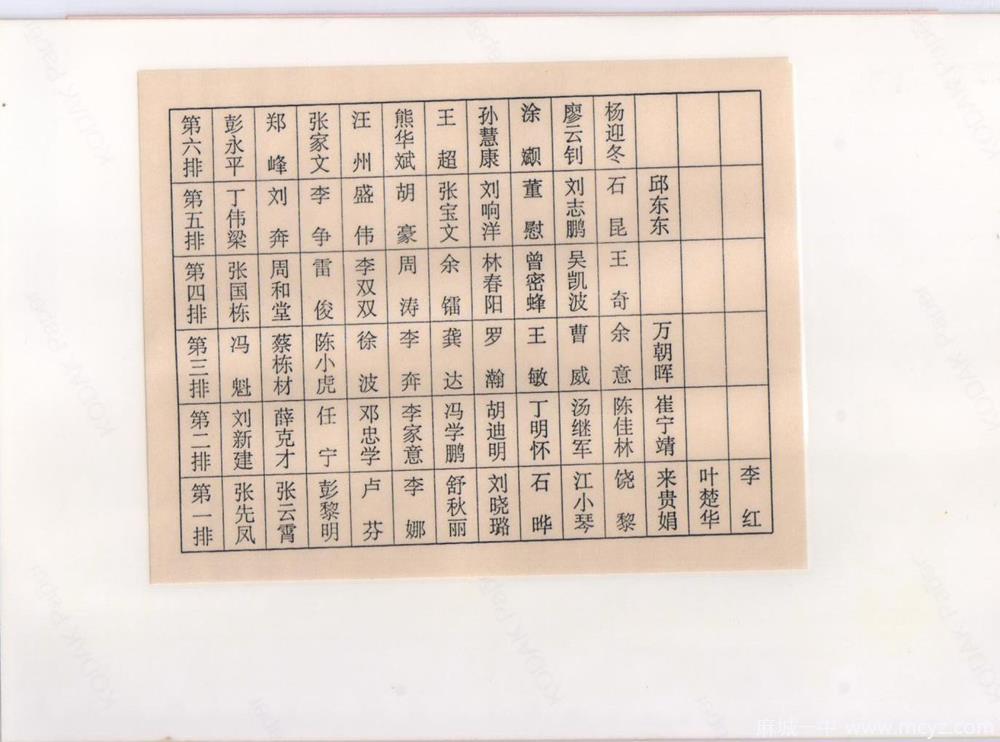 第六排 彭永平 郑峰 张家文 汪州 熊华斌 王超 孙慧康 涂灏 廖云钊 杨迎冬
第五排 丁伟梁 刘奔 李争 盛伟 胡豪 张宝文 刘响洋 董慰 刘志鹏 石昆 邱东东
第四排 张国栋 周和堂 雷俊 李双双 周涛 余镭 林春阳 曾密蜂 吴凯波 王奇
第三排 冯魁 蔡栋材 陈小虎 徐波 李奔 龚达 罗瀚 王敏 曹威 余意 万朝晖
第二排 刘新建 薛克才 任宁 邓忠学 李家意 冯学鹏 胡迪明 丁明怀 汤继军 陈佳林 崔宁靖
第一排 张先凤 张云霄 彭黎明 卢芬 李娜 舒秋丽 刘晓璐 石晔 江小琴 饶黎 来贵娟 叶楚华 李红
麻城一中 www.mcyz.com